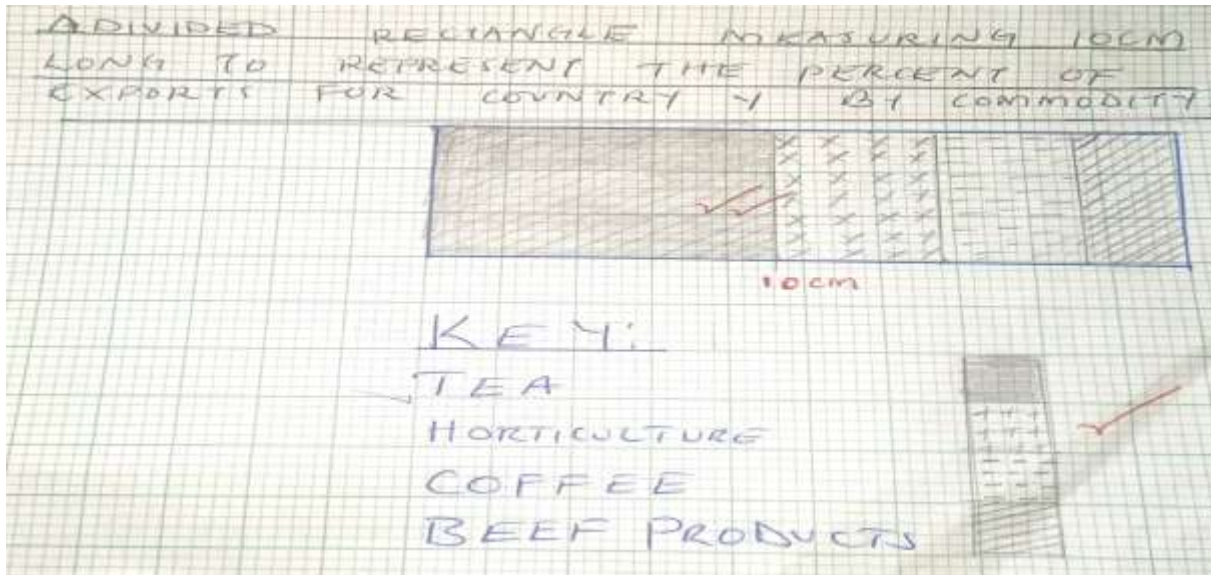 A DIVIDED RECTANGLE MEASURING 10CM
LONG TO REPRESENT THE PERCENT OF
EXPORTS FOR COUNTRY Y BY COMMODITY
10cm
KEY:
TEA
HORTICULTURE
COFFEE
BEEF PRODUCTS